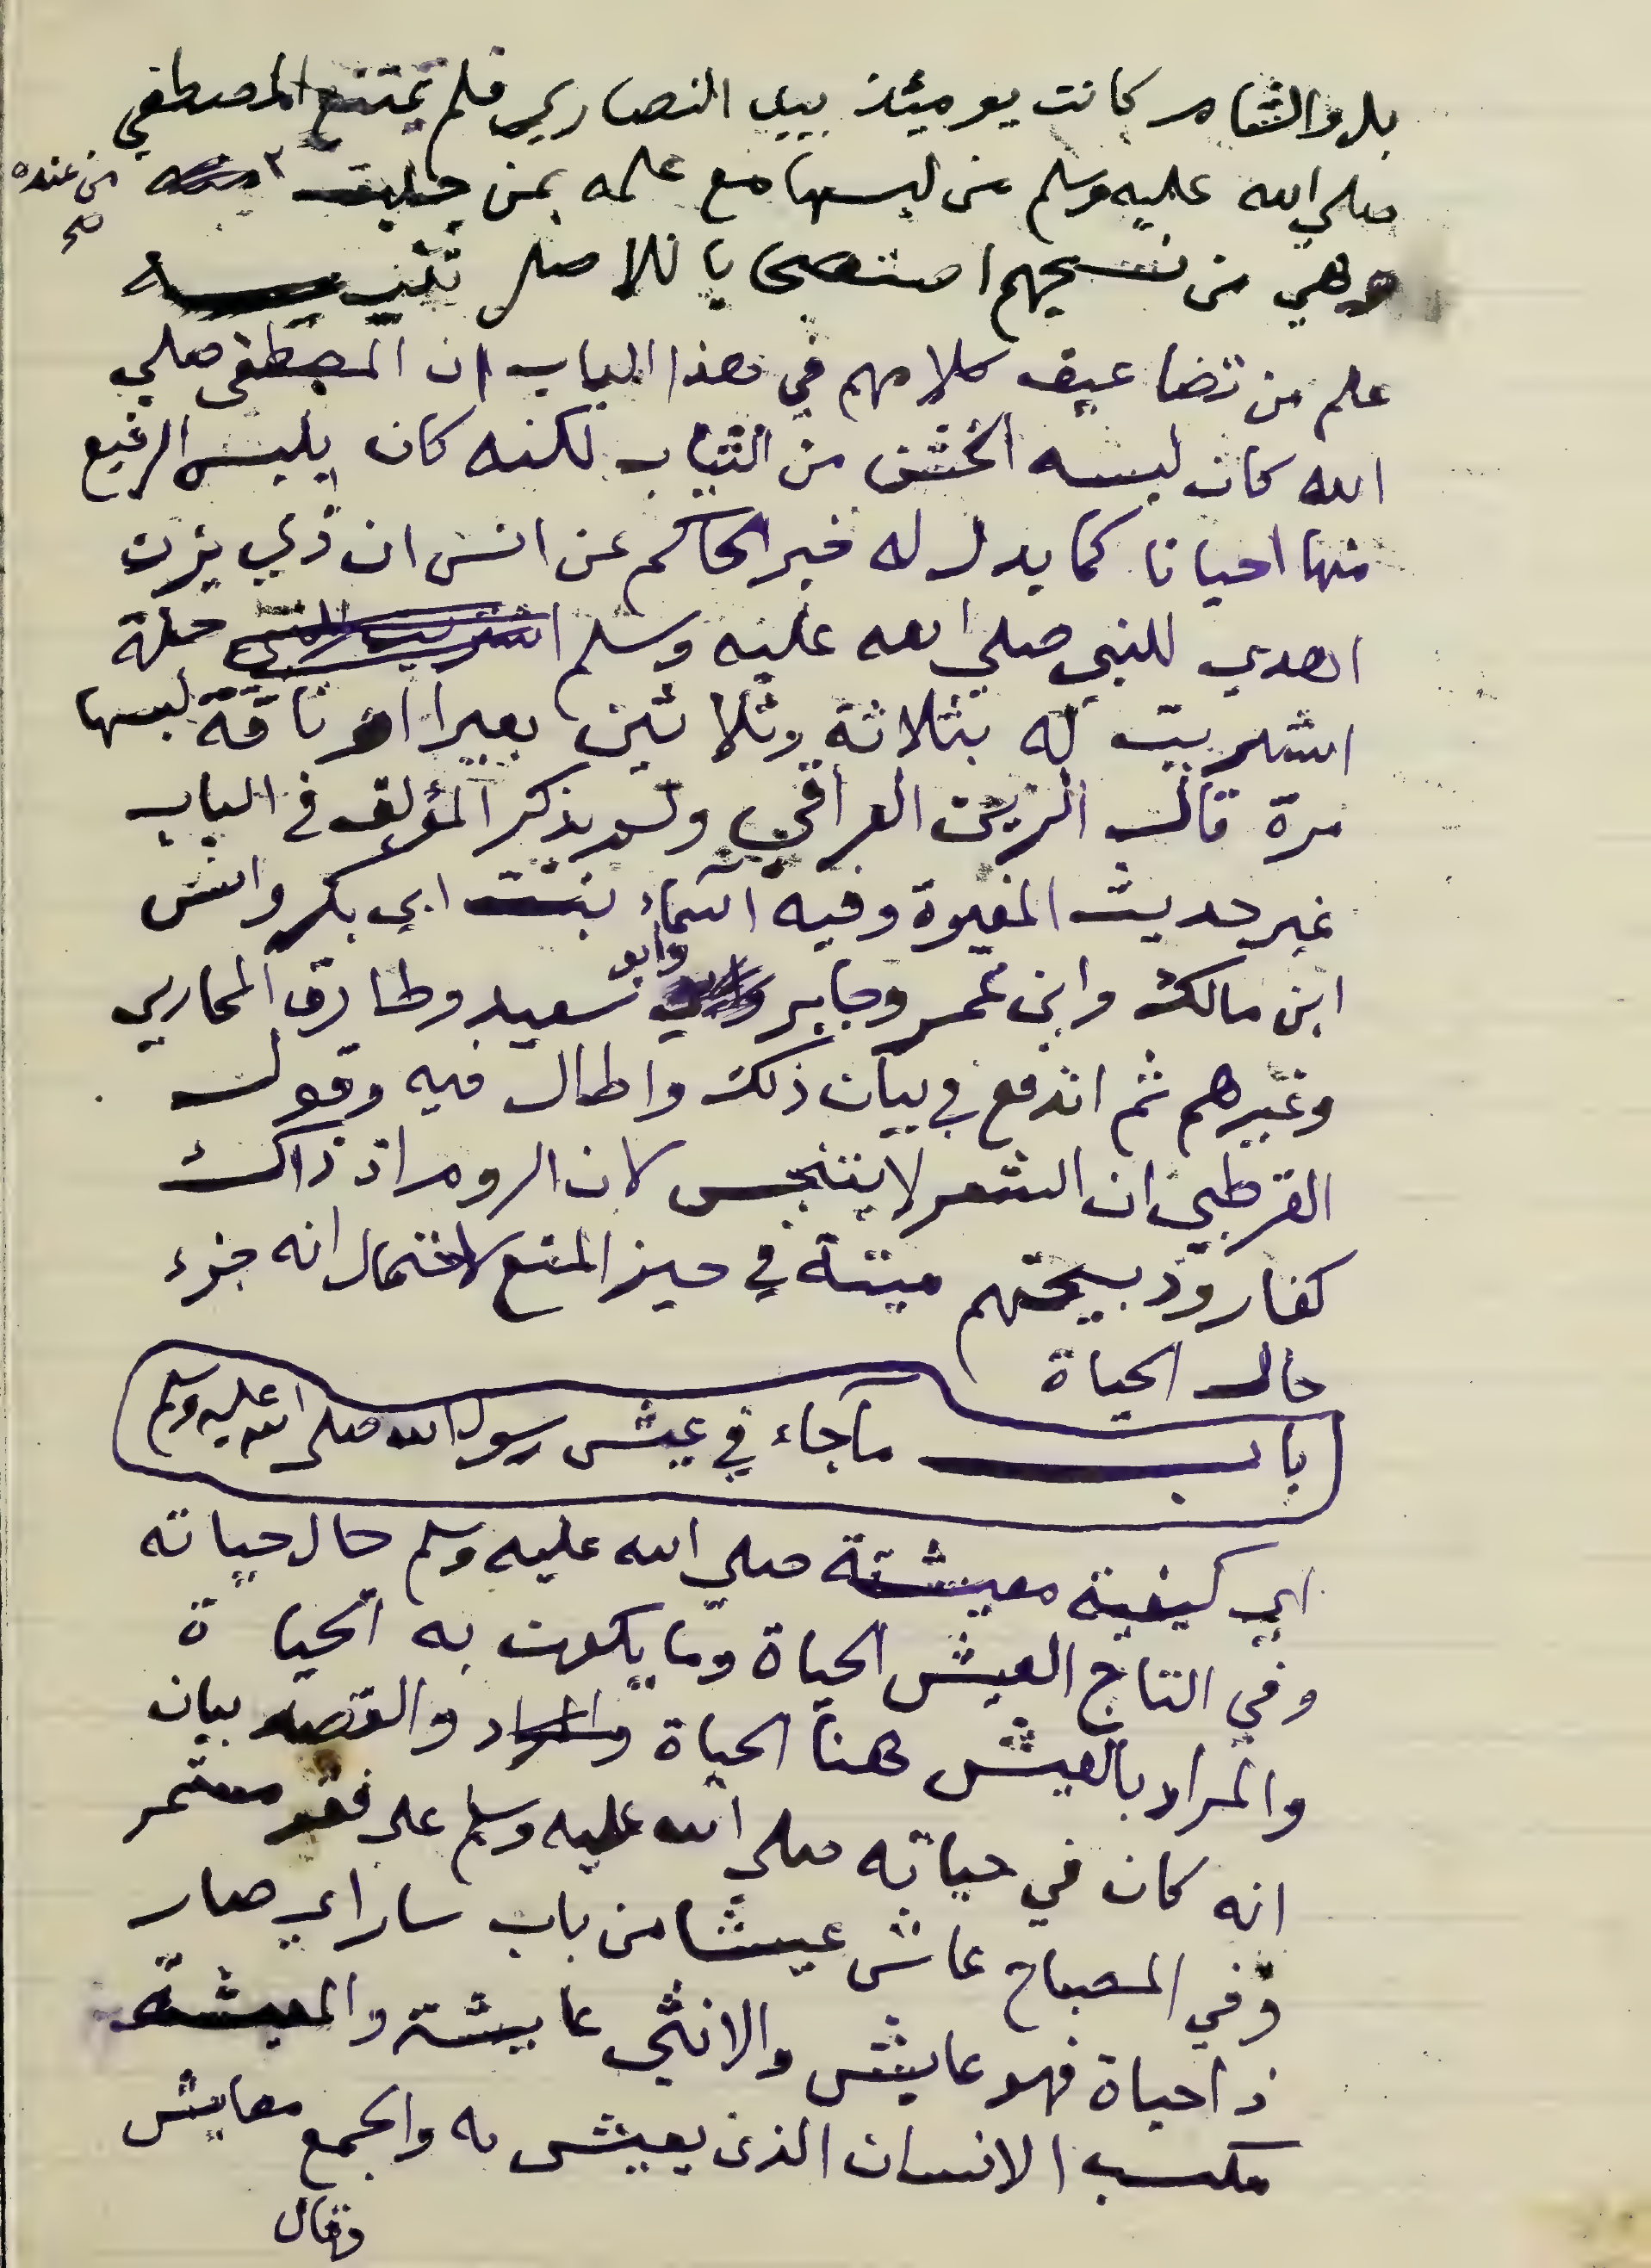 بل والشام كانت يومئذ بيد النصاري فلم يمتنع المصطفي
صلي الله عليه وسلم من لبسها مع علمه بمن جلبت من عنده صح
وهي من نسجهم استصحابا للاصل تنبيه
علم من تضاعيف كلامهم في هذا الباب ان المصطفي صلي
الله كان لبسه الخشن من الثياب لكنه كان يلبس الرفيع
منها احيانا كما يدل له خبر الحاكم عن انس ان ذي يزن
اهدي للنبي صلي الله عليه وسلم حلة
اشتريت له بثلاثة وثلاثين بعيرا او ناقة لبسها
مرة قال الزين العراقي ولم يذكر المؤلف في الباب
غير حديث المغيرة وفيه اسماء بنت ابي بكر وانس
ابن مالك وابن عمر وجابر وابو سعيد وطارق المحاربي
وغيرهم ثم اندفع في بيان ذلك واطال فيه وقول
القرطبي ان الشعر لا ينجس لان الروم اذ ذاك
كفار وذبيحتهم ميتة في حيز المنع لاحتمال انه جزء
حال الحياة
باب ماجاء في عيش رسول الله صلي الله عليه وسلم
اي كيفية معيشته صلي الله عليه وسلم حال حياته
وفي التاج العيش الحياة وما يكون به الحياة
والمراد بالعيش هنا الحياة والقصد بيان
انه كان في حياته صلي الله عليه وسلم علي فقر مستمر
وفي المصباح عاش عيشا من باب سار اي صار
ذا حياة فهو عايش والانثي عايشة والمعيشة
مكسب الانسان الذي يعيش به والجمع معايش
وقال